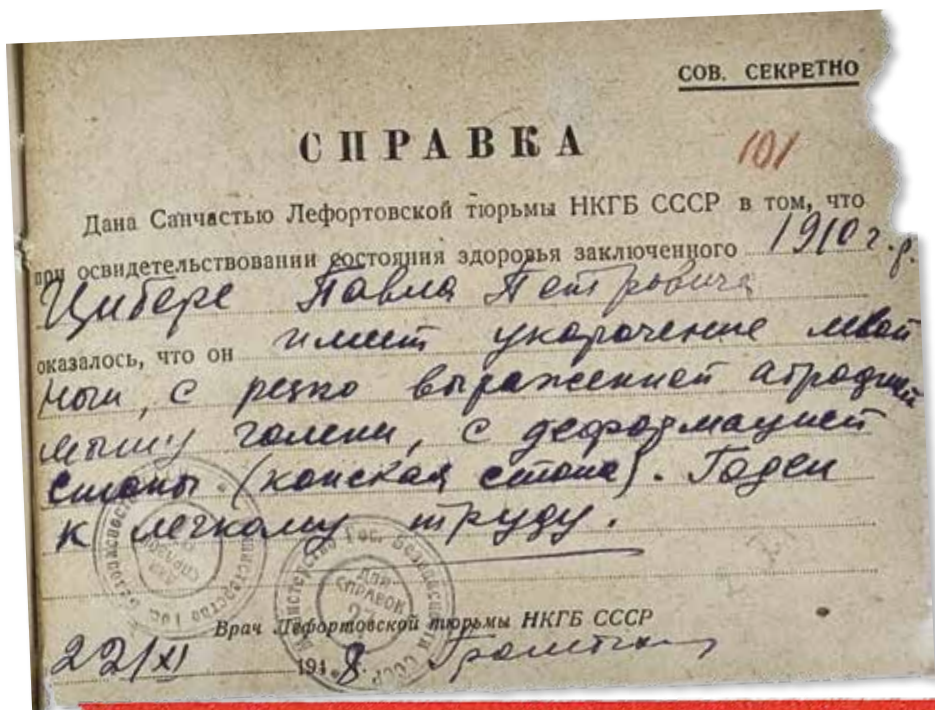 СОВ. СЕКРЕТНО
СПРАВКА
101
Дана Санчастью Лефортовской тюрьмы НКГБ СССР в том, что
при освидетельствовании состояния здоровья заключенного 1910 г.р.
Цибере Павла Петровича
оказалось, что он имеет укорочение левой
ноги, с резко выраженной атрофией
мышц голени, с деформацией
стопы (конская стопа). Годен
к легкому труду.
Министерство Гос. Безопасности СССР
ДЛЯ СПРАВОК
Министерство Гос. Безопасности СССР
ДЛЯ СПРАВОК
Врач Лефортовской тюрьмы НКГБ СССР
22/XI 1948.